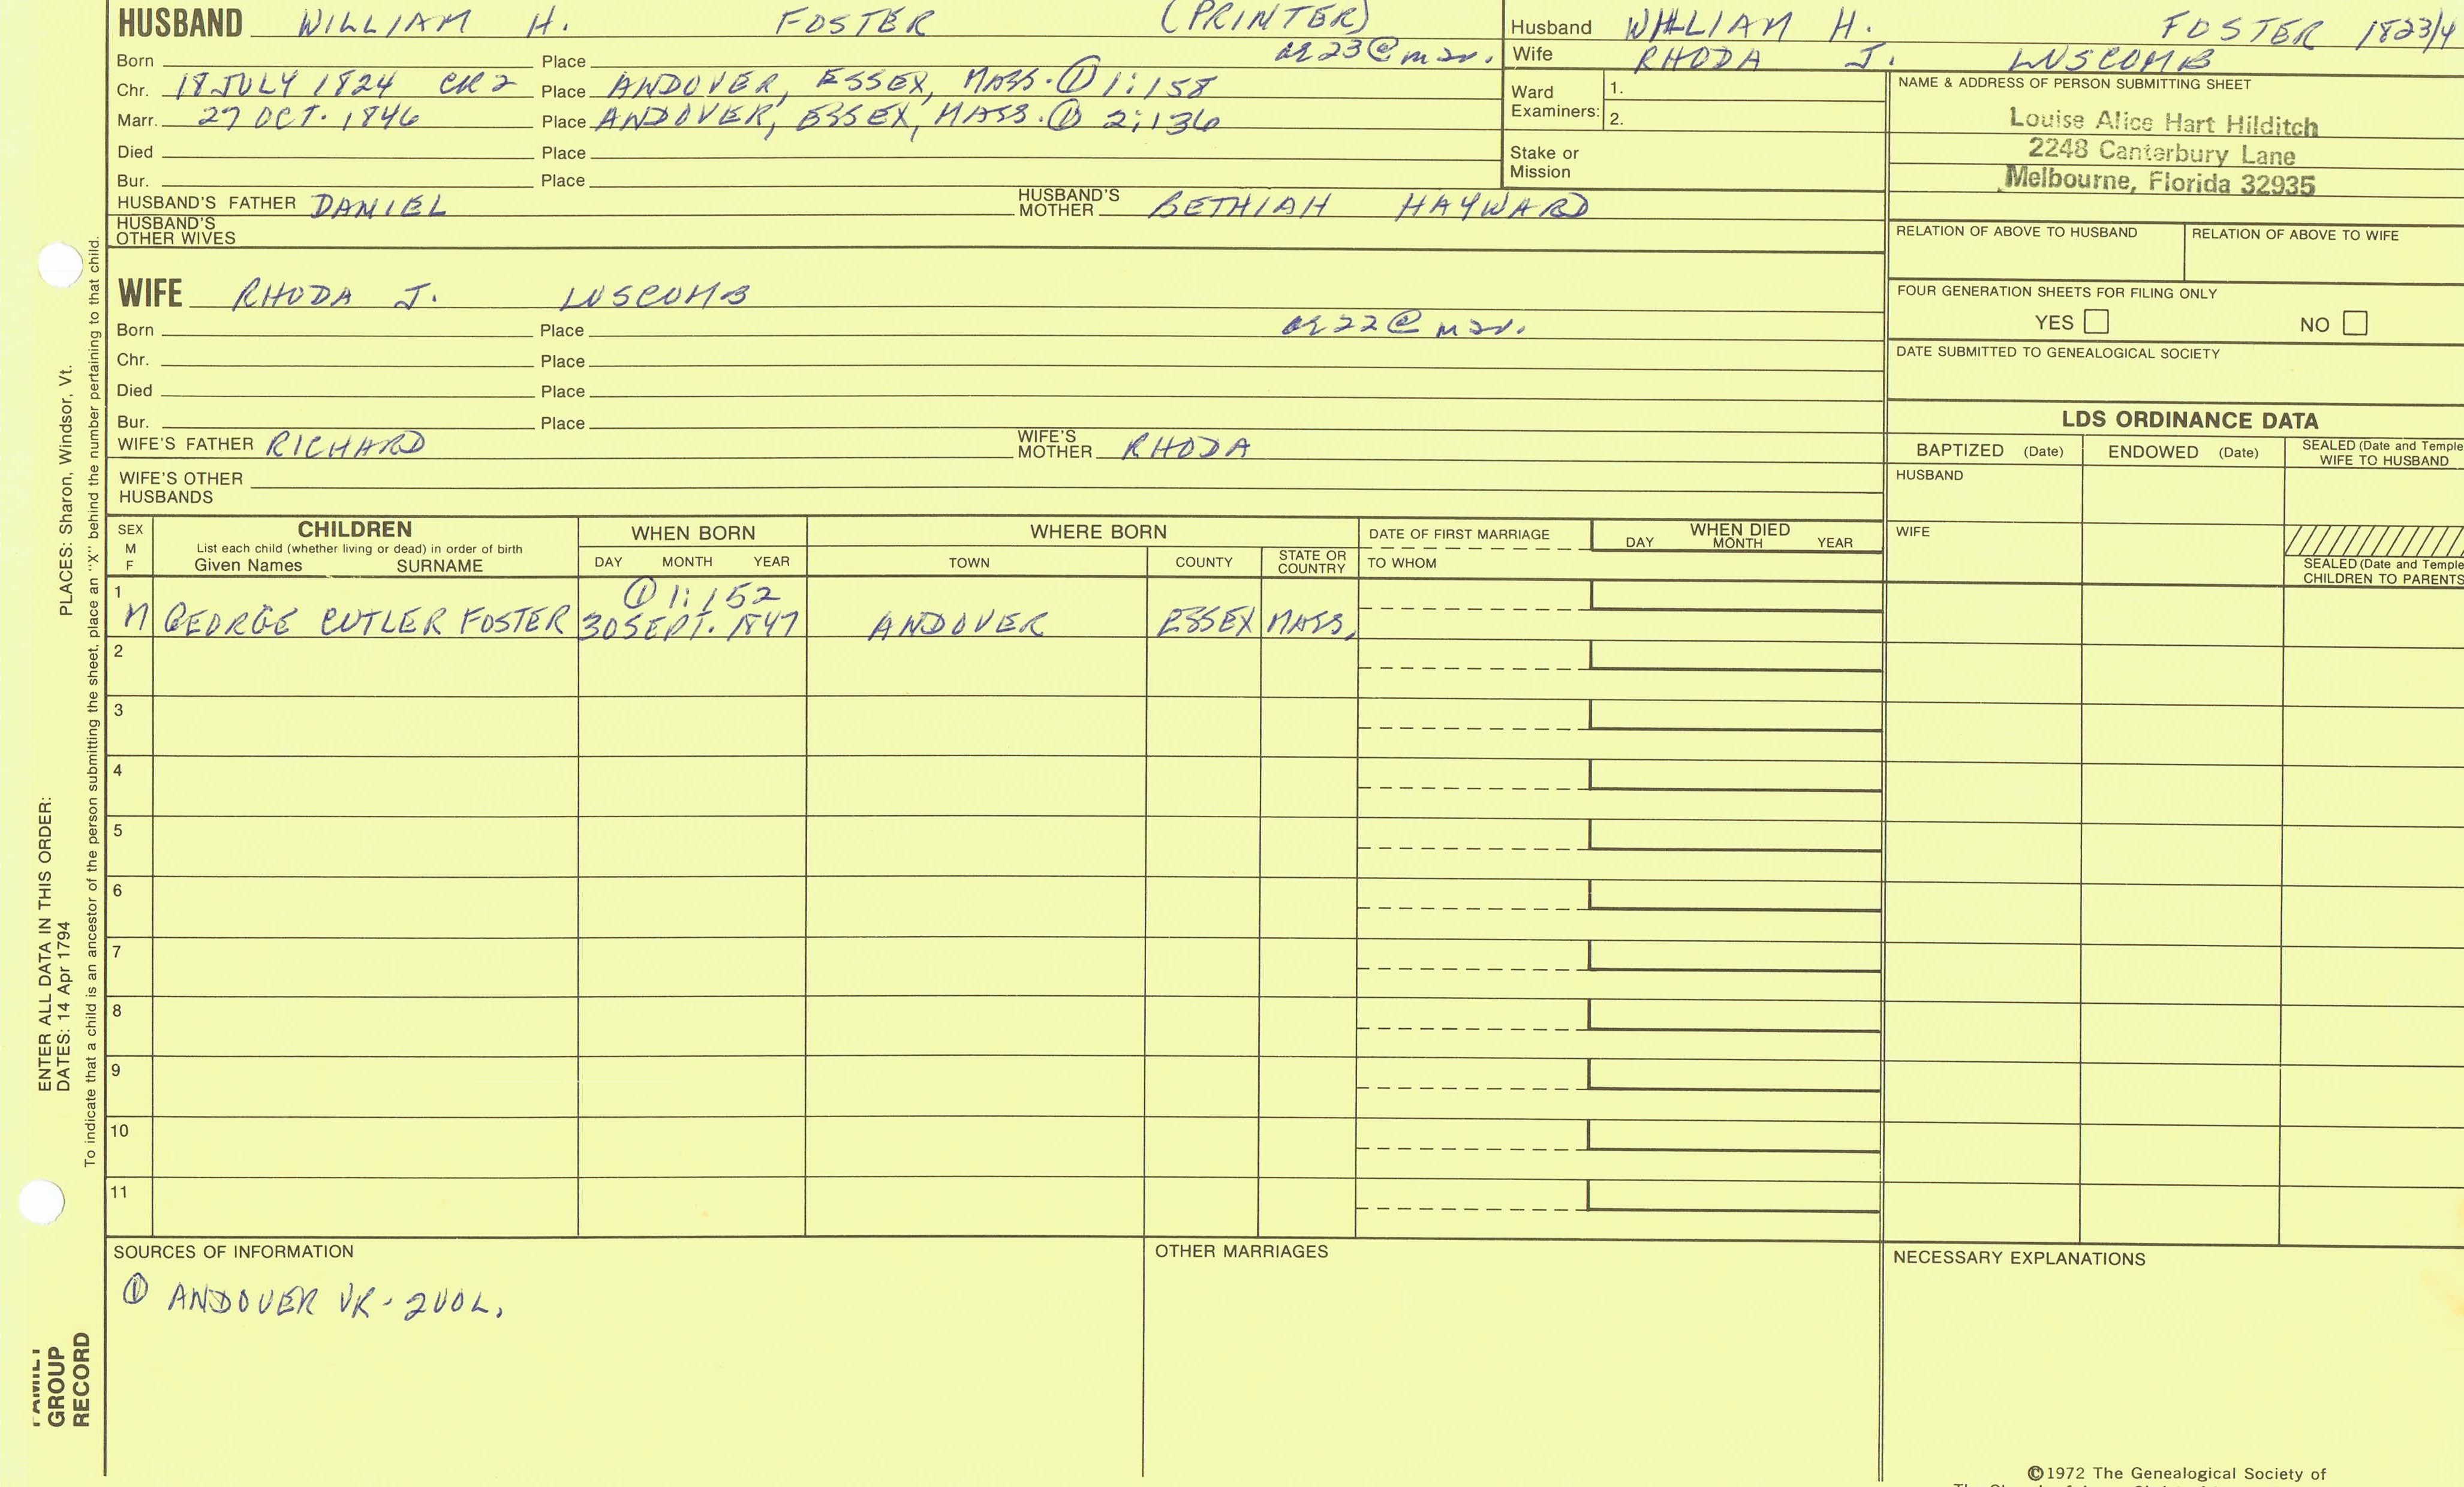 HUSBAND WILLIAM H. FOSTER (PRINTER)
Born Place 23@mar.
Chr. 18 JULY 1824 CR2 Place ANDOVER, ESSEX, MASS. ① 1:158
Marr. 27 OCT. 1846 Place ANDOVER, ESSEX, MASS. ① 2:136
Died Place
Bur. Place
HUSBAND'S FATHER DANIEL HUSBAND'S MOTHER BETHIAH HAYWARD
HUSBAND'S OTHER WIVES
Husband WILLIAM H. FOSTER 1823/4
Wife RHODA J. LUSCOMB
Ward Examiners: 1.
2.
Stake or Mission
NAME & ADDRESS OF PERSON SUBMITTING SHEET
Louise Alice Hart Hilditch
2248 Canterbury Lane
Melbourne, Florida 32935
RELATION OF ABOVE TO HUSBAND RELATION OF ABOVE TO WIFE
FOUR GENERATION SHEETS FOR FILING ONLY
YES NO
DATE SUBMITTED TO GENEALOGICAL SOCIETY
WIFE RHODA J. LUSCOMB
Born Place 22@mar.
Chr. Place
Died Place
Bur. Place
WIFE'S FATHER RICHARD WIFE'S MOTHER RHODA
WIFE'S OTHER HUSBANDS
LDS ORDINANCE DATA
BAPTIZED (Date) ENDOWED (Date) SEALED (Date and Temple
WIFE TO HUSBAND
HUSBAND
WIFE
SEALED (Date and Temple
CHILDREN TO PARENTS
SEX M F
CHILDREN
List each child (whether living or dead) in order of birth
Given Names SURNAME
WHEN BORN
DAY MONTH YEAR
WHERE BORN
TOWN COUNTY STATE OR COUNTRY
DATE OF FIRST MARRIAGE
TO WHOM
WHEN DIED
DAY MONTH YEAR
1 ① 1:152
M GEORGE CUTLER FOSTER 30 SEPT. 1847 ANDOVER ESSEX MASS.
2
3
4
5
6
7
8
9
10
11
SOURCES OF INFORMATION
① ANDOVER VR - 2 VOL.
OTHER MARRIAGES
NECESSARY EXPLANATIONS
©1972 The Genealogical Society of
ENTER ALL DATA IN THIS ORDER:
DATES: 14 Apr 1794 PLACES: Sharon, Windsor, Vt.
To indicate that a child is an ancestor of the person submitting the sheet, place an "X" behind the number pertaining to that child.
FAMILY
GROUP
RECORD